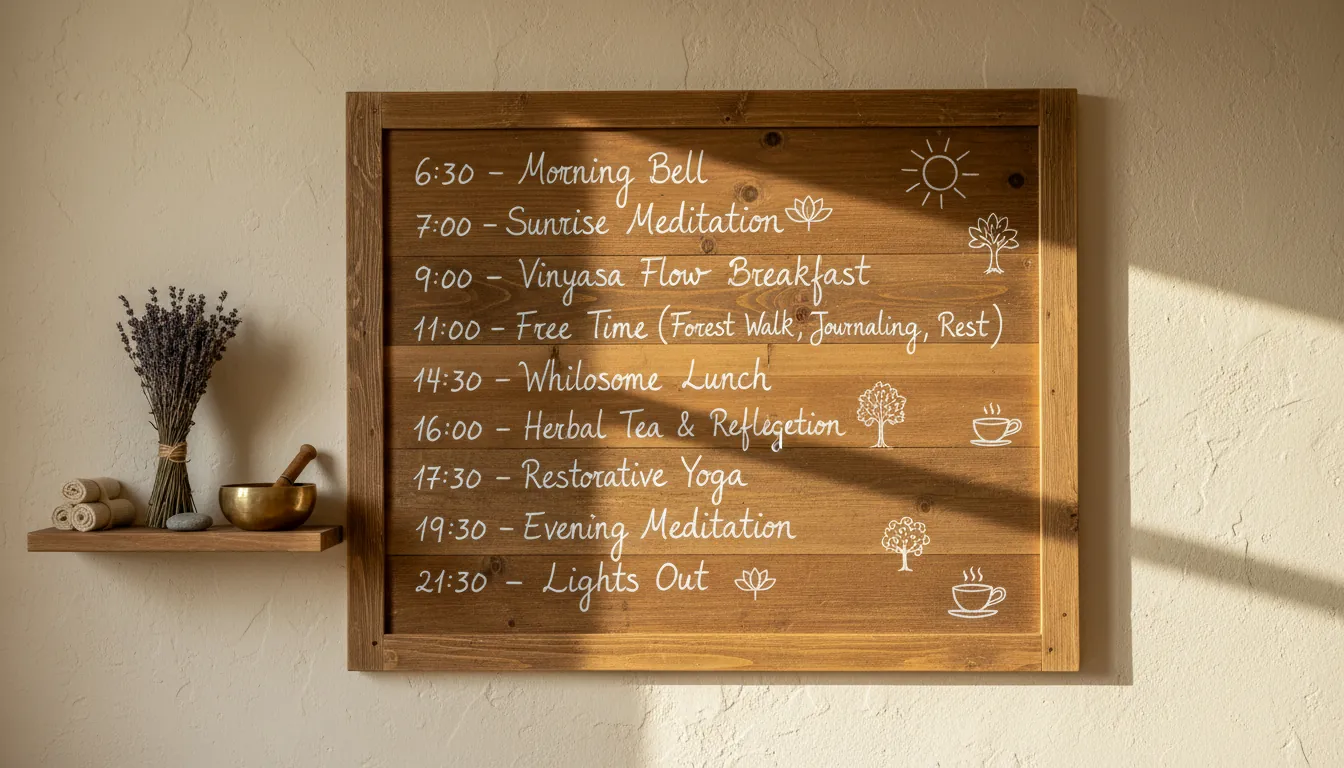 6:30 – Morning Bell
7:00 – Sunrise Meditation
9:00 – Vinyasa Flow Breakfast
11:00 – Free Time (Forest Walk, Journaling, Rest)
14:30 – Whilosome Lunch
16:00 – Herbal Tea &
17:30 – Restorative Yoga
19:30 – Evening Meditation
21:30 – Lights Out